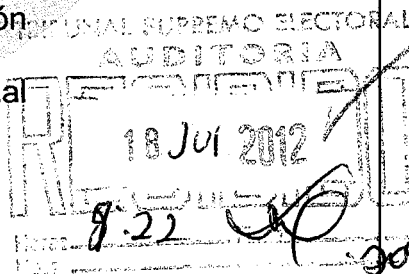 ón
TRIBUNAL SUPREMO ELECTORAL
AUDITORIA
al
18 Jul 2012
8:22